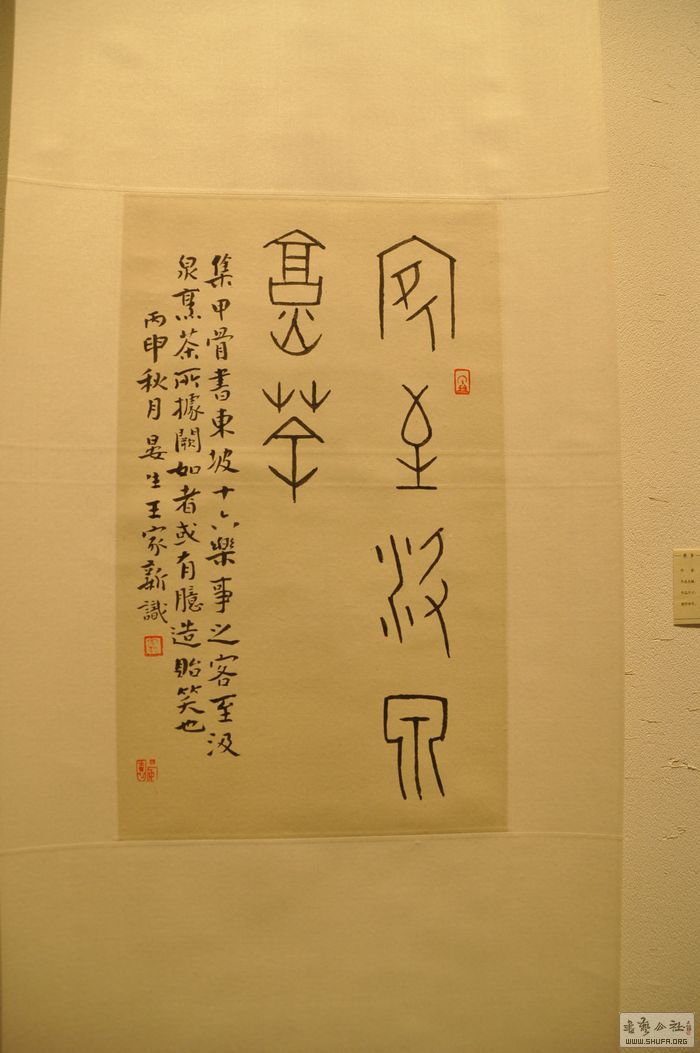 客至汲泉
烹茶
集甲骨書東坡十六樂事之客至汲
泉烹茶所據闕如者或有臆造貽笑也
丙申秋月晏生王家新識
書藝公社
WWW.SHUFA.ORG